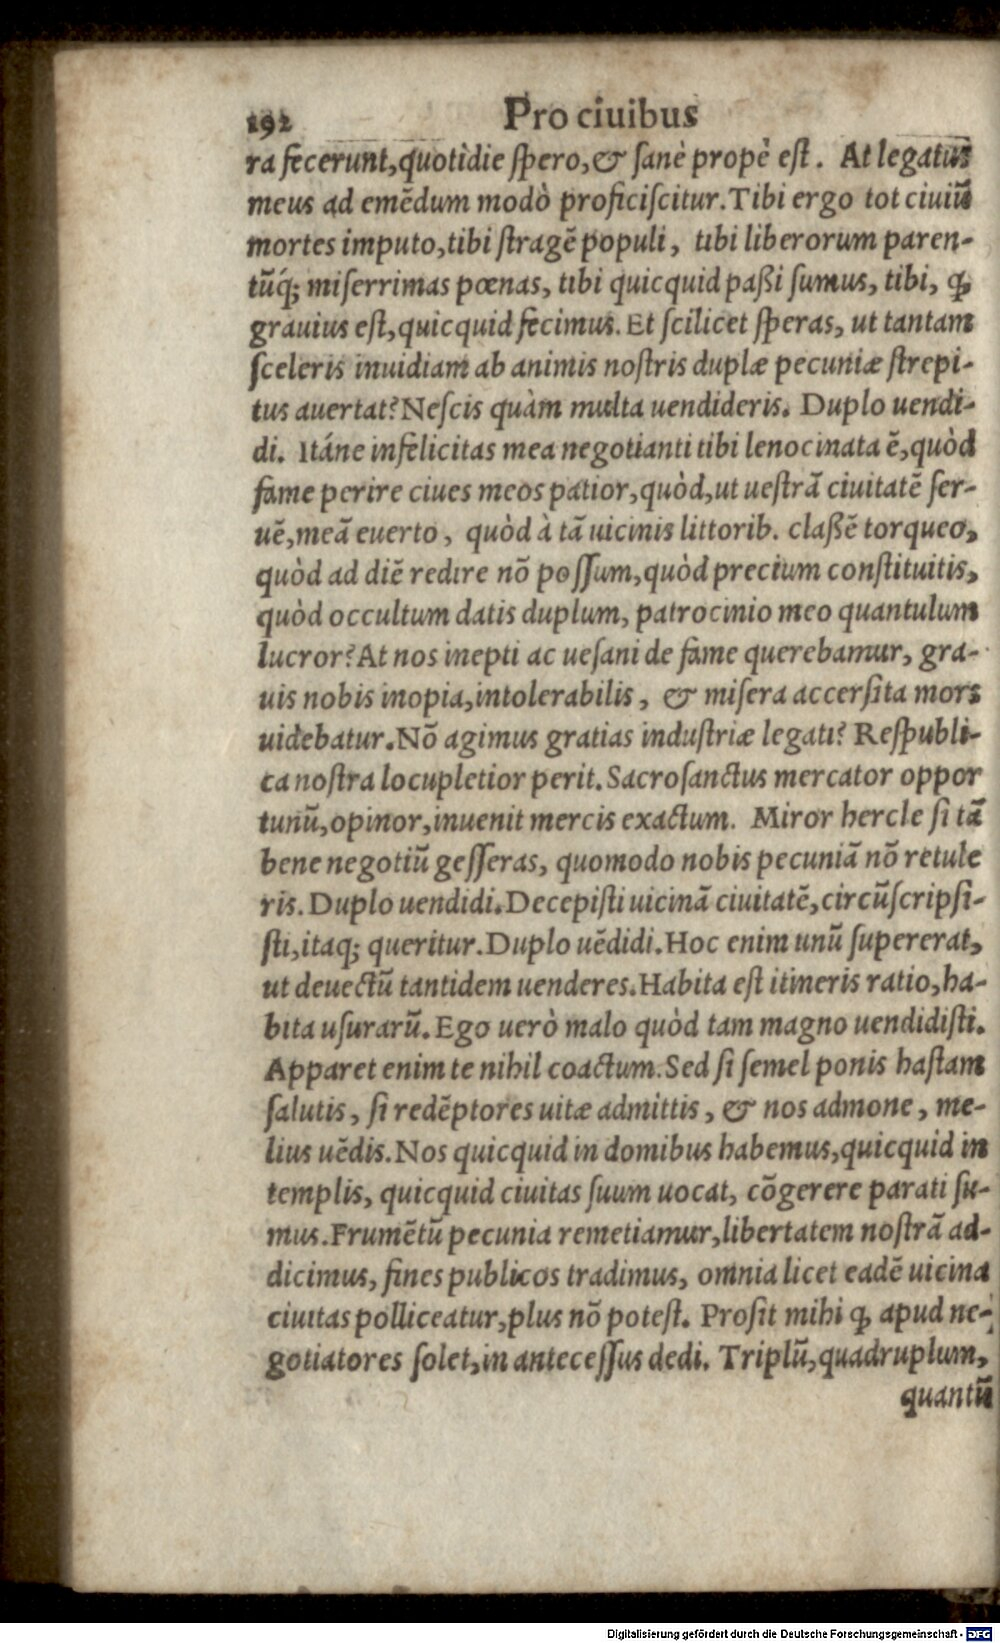 192 Pro ciuibus
ra fecerunt, quotidie spero, & sanè propè est. At legatus
meus ad emẽdum modò proficiscitur. Tibi ergo tot ciuiũ
mortes imputo, tibi stragẽ populi, tibi liberorum paren-
tũq́; miserrimas pœnas, tibi quicquid paßi sumus, tibi, ꝙ
grauius est, quicquid fecimus. Et scilicet speras, ut tantam
sceleris inuidiam ab animis nostris duplæ pecuniæ strepi-
tus auertat? Nescis quàm multa uendideris. Duplo uendi-
di. Itáne infelicitas mea negotianti tibi lenocinata ẽ, quòd
fame perire ciues meos patior, quòd, ut uestrã ciuitatẽ ser-
uẽ, meã euerto, quòd à tã uicinis littorib. claßẽ torqueo,
quòd ad diẽ redire nõ possum, quòd precium constituitis,
quòd occultum datis duplum, patrocinio meo quantulum
lucror? At nos inepti ac uesani de fame querebamur, gra-
uis nobis inopia, intolerabilis, & misera accersita mors
uidebatur. Nõ agimus gratias industriæ legati? Respubli-
ca nostra locupletior perit. Sacrosanctus mercator oppor
tunũ, opinor, inuenit mercis exactum. Miror hercle si tã
bene negotiũ gesseras, quomodo nobis pecuniã nõ retule
ris. Duplo uendidi. Decepisti uicinã ciuitatẽ, circũscripsi-
sti, itaq; queritur. Duplo uẽdidi. Hoc enim unũ supererat,
ut deuectũ tantidem uenderes. Habita est itineris ratio, ha-
bita usurarũ. Ego uerò malo quòd tam magno uendidisti.
Apparet enim te nihil coactum. Sed si semel ponis hastam
salutis, si redẽptores uitæ admittis, & nos admone, me-
lius uẽdis. Nos quicquid in domibus habemus, quicquid in
templis, quicquid ciuitas suum uocat, cõgerere parati su-
mus. Frumẽtũ pecunia remetiamur, libertatem nostrã ad-
dicimus, fines publicos tradimus, omnia licet eadẽ uicina
ciuitas polliceatur, plus nõ potest. Prosit mihi ꝙ apud ne-
gotiatores solet, in antecessus dedi. Triplũ, quadruplum,
quantũ
Digitalisierung gefördert durch die Deutsche Forschungsgemeinschaft - DFG